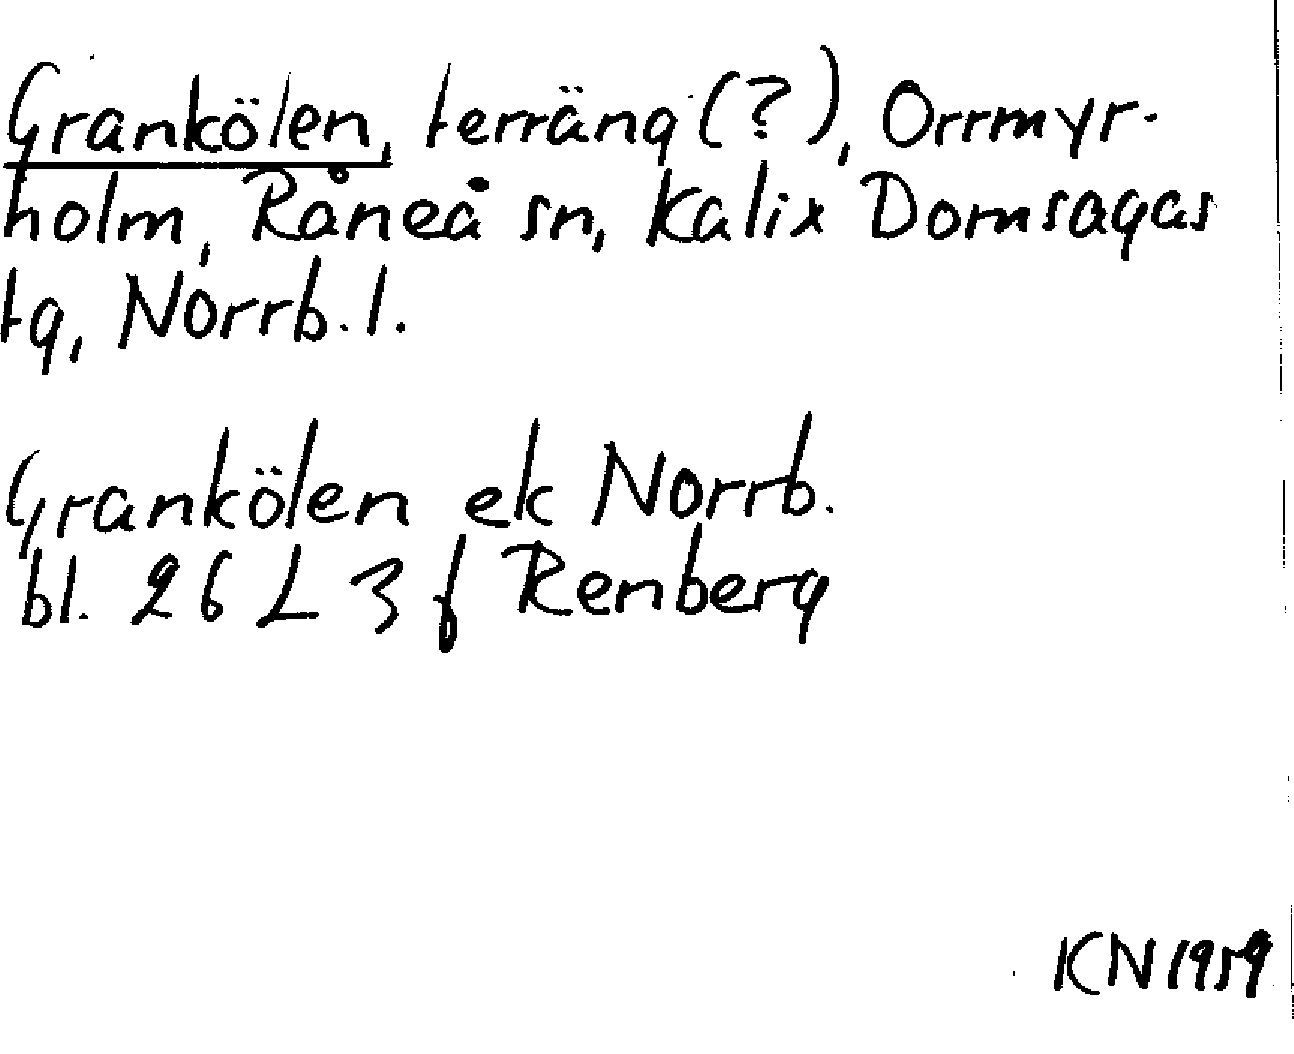 Grankölen, terräng (?), Orrmyr-
holm, Råneå sn, Kalix Domsagas
tg, Norrb. l.
Grankölen ek Norrb.
bl. 26 L 3 f Renberg
KN 1959